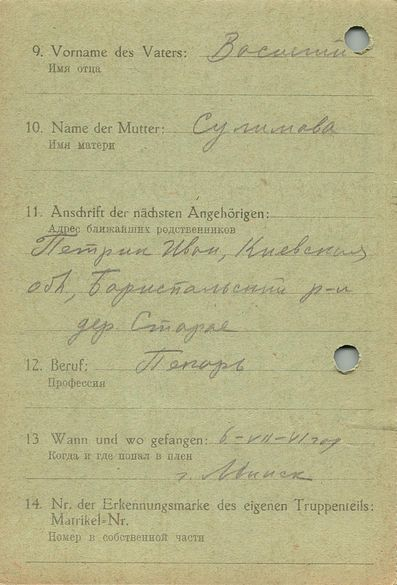 9. Vorname des Vaters: Василий
Имя отца
10. Name der Mutter: Сулимова
Имя матери
11. Anschrift der nächsten Angehörigen:
Адрес ближайших родственников
Петрик Иван, Киевская
обл, Бориспольский р-н
дер. Старое
12. Beruf: Пекарь
Профессия
13 Wann und wo gefangen: 6-VII-41 год
Когда и где попал в плен
г. Минск
14. Nr. der Erkennungsmarke des eigenen Truppenteils:
Matrikel-Nr.
Номер в собственной части